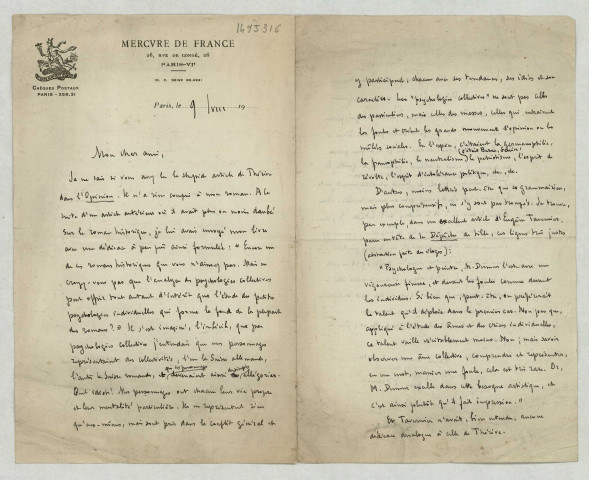 1695316
MERCVRE DE FRANCE
26, RVE DE CONDÉ, 26
PARIS-VIe
CHÈQUES POSTAUX
PARIS - 259.31
Paris, le 9 VIII 19
Mon cher ami,
Je ne sais si vous avez lu le stupide article de Thérive
dans l'Opinion. Il n'a rien compris à mon roman. A la
suite d'un article antérieur où il avait plus ou moins daubé
sur le roman historique, je lui avais envoyé mon livre
avec une dédicace à peu près ainsi formulée : " Encore un
de ces romans historiques que vous n'aimez pas. Mais ne
croyez-vous pas que l'analyse des psychologies collectives
peut offrir tout autant d'intérêt que l'étude des petites
psychologies individuelles qui forme le fond de la plupart
des romans ? " Il s'est imaginé, l'imbécile, que par
psychologies collectives j'entendais que mes personnages
représentaient des collectivités, l'un la Suisse allemande,
l'autre la Suisse romande, et que les personnages devenaient ainsi de simples allégories.
Mes personnages ont chacun leur vie propre
et leur mentalité particulière. Ils ne représentent rien
qu'eux-mêmes, mais sont pris dans le conflit général et
y participent, chacun avec ses tendances, ses idées et son
caractère. Les "psychologies collectives" ne sont pas celles
des particuliers, mais celles des masses, celles qui entraînent
les foules et créent les grands mouvements d'opinion ou les
mêlées sociales. En l'espèce, c'étaient la germanophilie,
la francophilie, le neutralisme, le patriotisme, l'esprit de
révolte, l'esprit d'intolérance politique, etc., etc.
D'autres, moins lettrés peut-être que ce grammairien,
mais plus compréhensifs, ne s'y sont pas trompés. Je trouve,
par exemple, dans un excellent article d'Eugène Tavernier,
paru en tête de la Dépêche de Lille, ces lignes très justes
(abstraction faite des éloges) :
"Psychologue et peintre, M. Dumur l'est avec une
vigoureuse finesse, et devant les foules comme devant
les individus. Si bien que, peut-être, on préférerait
le talent qu'il déploie dans le premier cas. Non pas que,
appliqué à l'étude des âmes et des crises individuelles,
ce talent vaille véritablement moins. Non ; mais savoir
observer une âme collective, comprendre et représenter,
en un mot, manier une foule, cela est très rare. Or,
M. Dumur excelle dans cette besogne artistique, et
c'est ainsi plutôt qu'il fait impression."
Et Tavernier n'avait, bien entendu, aucune
dédicace analogue à celle de Thérive.